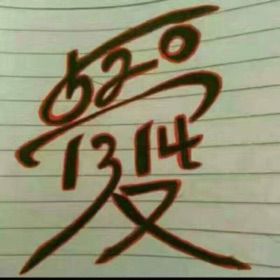 520
1314
又